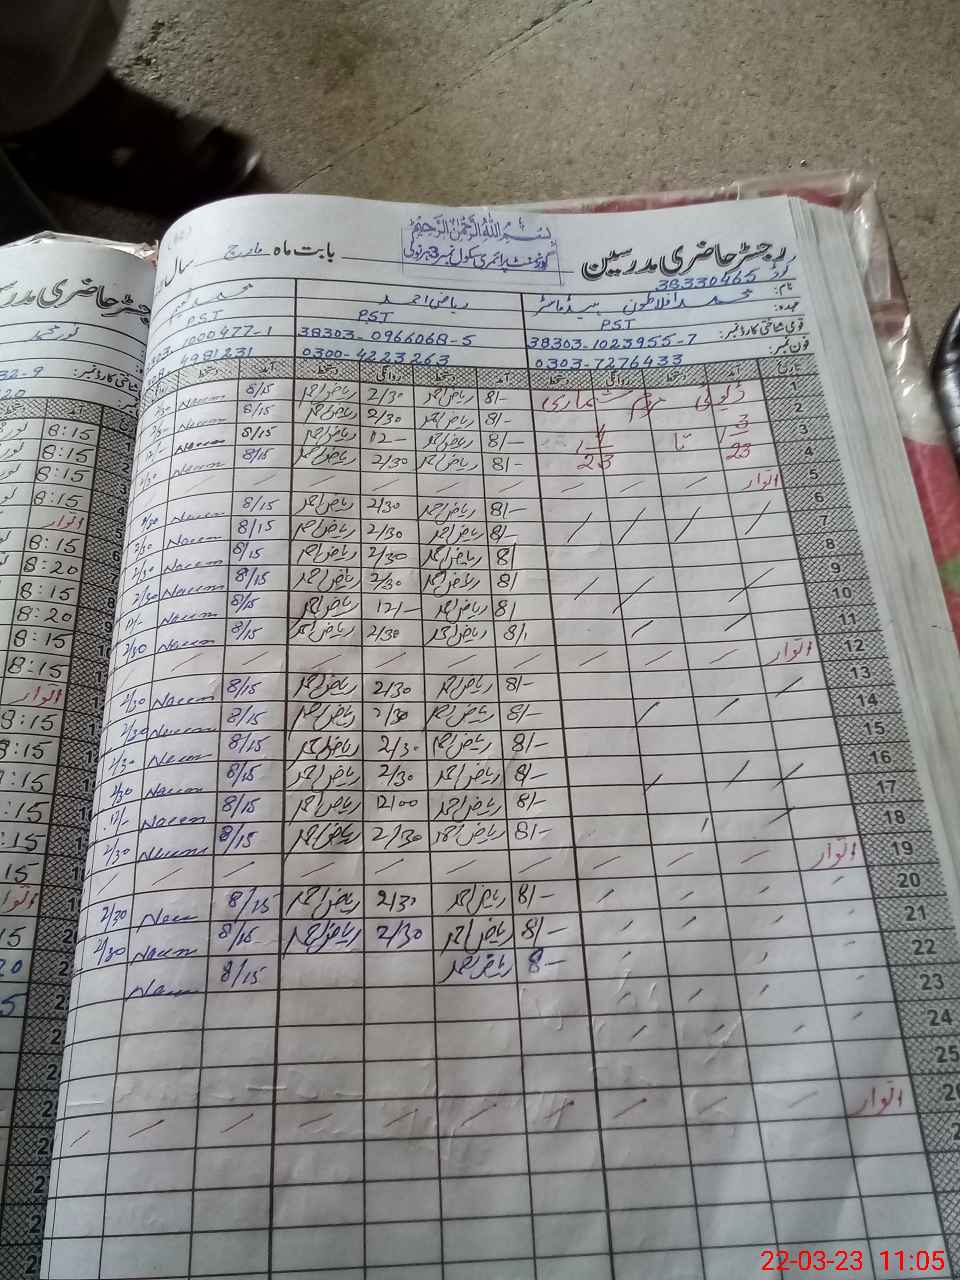 بسم اللہ الرحمن الرحیم
گورنمنٹ پرائمری سکول نمبر 3 ہرنولی
رجسٹر حاضری مدرسین بابت ماہ مارچ سال
کوڈ 38330465
نام: محمد افلاطون ہیڈماسٹر ریاض احمد محمد نعیم
عہدہ: PST PST PST
قومی شناختی کارڈ نمبر: 38303-1023955-7 38303-0966068-5 1000477-1
فون نمبر: 0303-7276433 0300-4223263 4981231
تاریخ آمد دستخط روانگی دستخط آمد دستخط روانگی دستخط آمد دستخط
1 ڈیوٹی مردم شماری 8/- ریاض احمد 2/30 ریاض احمد 8/15 Naeem 2/30
2 8/- ریاض احمد 2/30 ریاض احمد 8/15 Naeem
3 8/- ریاض احمد 12- ریاض احمد 8/15 Naeem 12/-
4 23 تا 23 8/- ریاض احمد 2/30 ریاض احمد 8/15 Naeem
5 اتوار
6 8/- ریاض احمد 2/30 ریاض احمد 8/15 Naeem 2/30
7 8/- ریاض احمد 2/30 ریاض احمد 8/15 Naeem 2/30
8 8/ ریاض احمد 2/30 ریاض احمد 8/15 Naeem 2/30
9 8/ ریاض احمد 2/30 ریاض احمد 8/15 Naeem 2/30
10 8/ ریاض احمد 12/- ریاض احمد 8/15 Naeem
11 8/ ریاض احمد 2/30 ریاض احمد 8/15 Naeem 2/30
12 اتوار
13 8/- ریاض احمد 2/30 ریاض احمد 8/15 Naeem 2/30
14 8/- ریاض احمد 2/30 ریاض احمد 8/15 Naeem 2/30
15 8/- ریاض احمد 2/30 ریاض احمد 8/15 Naeem 2/30
16 8/- ریاض احمد 2/30 ریاض احمد 8/15 Naeem 2/30
17 8/- ریاض احمد 12/00 ریاض احمد 8/15 Naeem 12/-
18 8/- ریاض احمد 2/30 ریاض احمد 8/15 Naeem 2/30
19 اتوار
20 8/- ریاض احمد 2/30 ریاض احمد 8/15 Naeem 2/30
21 8/- ریاض احمد 2/30 ریاض احمد 8/15 Naeem 2/30
22 8- ریاض احمد 8/15 Naeem
23
24
25
26 اتوار
رجسٹر حاضری
نور محمد
32-9
8:15
8:15
8:15
8:15
اتوار
8:15
8:20
8:15
8:20
8:15
8:15
اتوار
8:15
8:15
:15
:15
15
اتوار
15
20
5
22-03-23 11:05